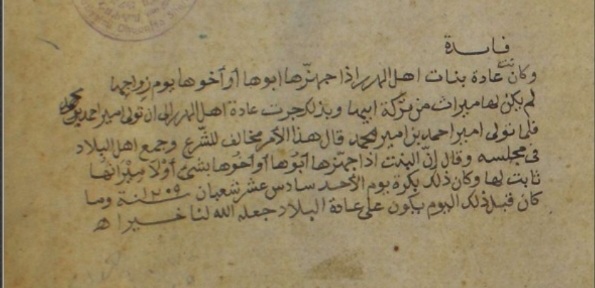 فائدة
وكانت عادة بنات اهل الهرر اذا جهزها ابوها أو أخوها يوم زواجها
لم يكن لها ميراث من تركة ابيها وبذلك جرت عادة اهل الهرر الى ان تولى امير احمد بن محمد
فلما تولى امير احمد بن امير محمد قال هذا الأمر مخالف للشرع وجمع اهل البلاد
في مجلسه وقال إن البنت اذا جهزها أبوها أو أخوها بشيء أولا ميراثها
ثابت لها وكان ذلك بكرة يوم الأحد سادس عشر شعبان ١٢٠٩ سنة وما
كان قبل ذلك اليوم يكون على عادة البلاد جعله الله لنا خيرا اه